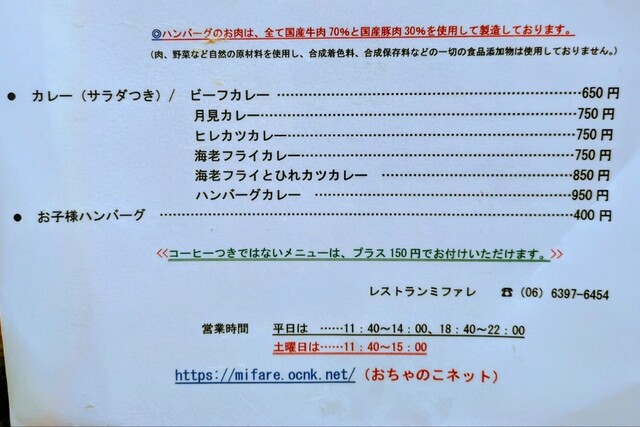 ◎ハンバーグのお肉は、全て国産牛肉70%と国産豚肉30%を使用して製造しております。
（肉、野菜など自然の原材料を使用し、合成着色料、合成保存料などの一切の食品添加物は使用しておりません。）
● カレー（サラダつき）/ ビーフカレー ………………………………………650円
月見カレー………………………………………750円
ヒレカツカレー………………………………………750円
海老フライカレー………………………………………750円
海老フライとひれカツカレー ………………………850円
ハンバーグカレー ………………………………950円
● お子様ハンバーグ ………………………………………………………400円
≪コーヒーつきではないメニューは、プラス150円でお付けいただけます。≫
レストランミファレ ☎（06）6397-6454
営業時間 平日は ……11：40～14：00、18：40～22：00
土曜日は……11：40～15：00
https://mifare.ocnk.net/（おちゃのこネット）